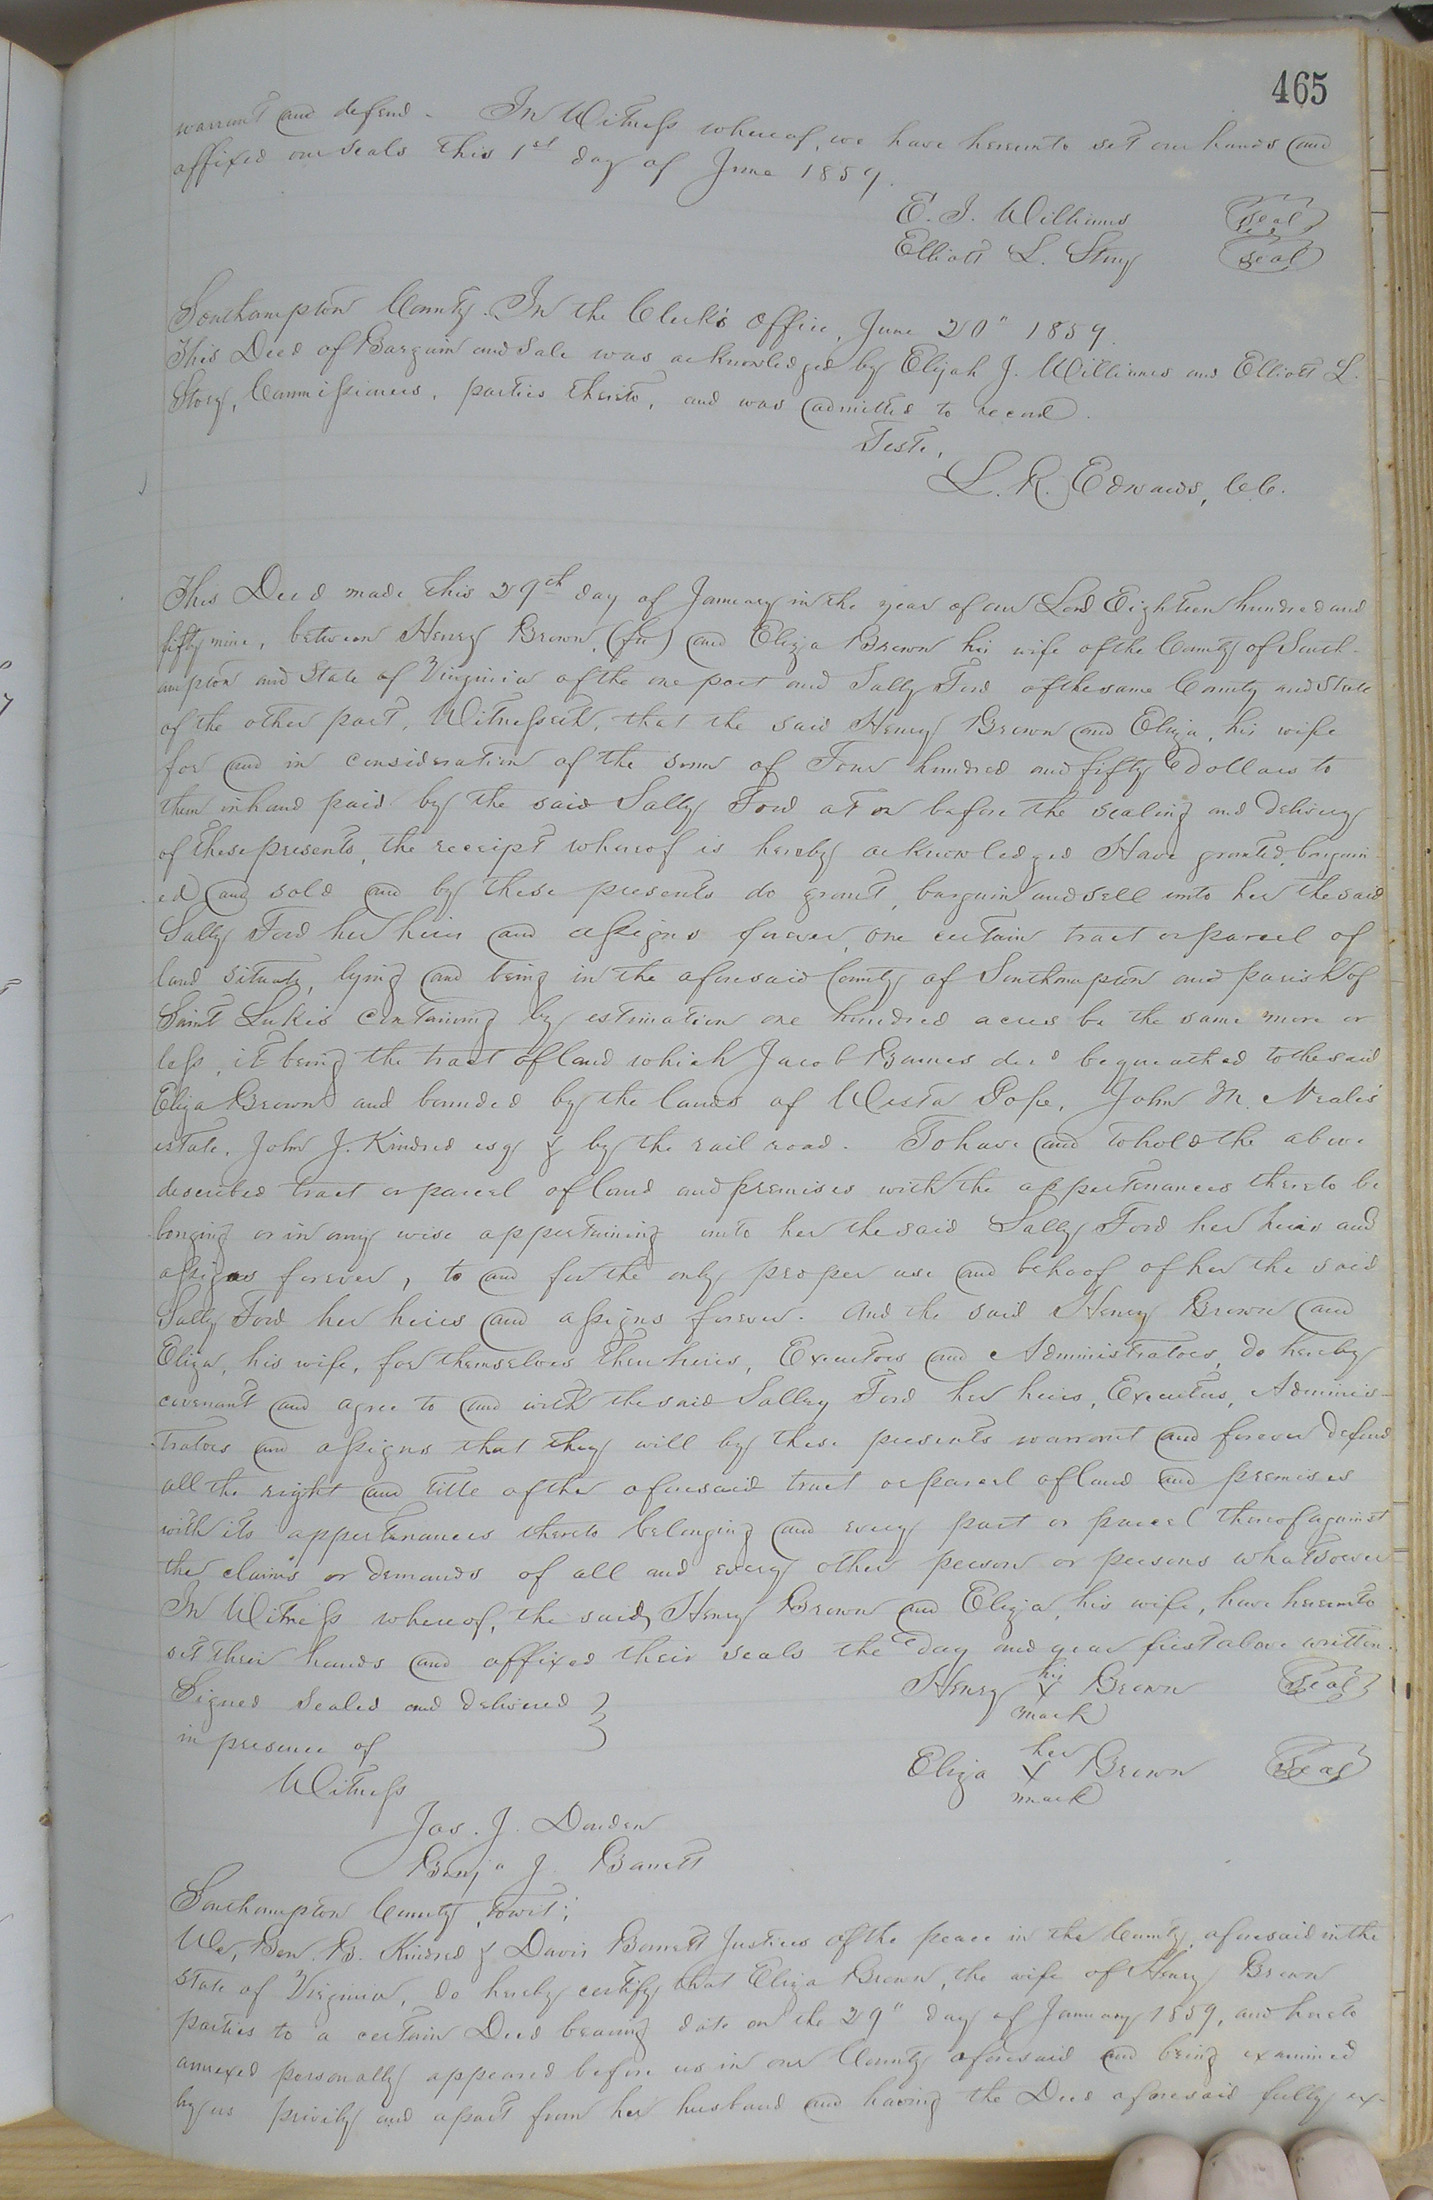 465
warrant and defend. In Witness whereof, we have hereunto set our hands and
affixed our seals this 1st day of June 1859.
E. J. Williams Seal
Elliott L. Story Seal
Southampton County. In the Clerk's office, June 20" 1859.
This Deed of Bargain and Sale was acknowledged by Elijah J. Williams and Elliott L.
Story, Commissioners, parties thereto, and was admitted to record.
Teste,
L. R. Edwards, CC.
This Deed made this 29th day of January in the year of our Lord Eighteen hundred and
fifty nine, between Henry Brown, and Eliza Brown his wife of the County of South-
ampton and State of Virginia of the one part and Sally Ford of the same County and State
of the other part, Witnesseth, that the said Henry Brown and Eliza, his wife
for and in consideration of the sum of Four hundred and fifty dollars to
them in hand paid by the said Sally Ford at or before the sealing and delivery
of these presents, the receipt whereof is hereby acknowledged Have granted, bargain-
ed and sold and by these presents do grant, bargain and sell unto her the said
Sally Ford her heirs and assigns forever, one certain tract or parcel of
land situate, lying and being in the aforesaid County of Southampton and parish of
Saint Luke's containing by estimation one hundred acres be the same more or
less, it being the tract of land which Jacob Barnes decd bequeathed to the said
Eliza Brown and bounded by the lands of Pope, John M. Neale's
estate, John J. Kindred esq & by the rail road. To have and to hold the above
described tract or parcel of land and premises with the appertenances thereto be
longing or in any wise appertaining unto her the said Sally Ford her heirs and
assigns forever, to and for the only proper use and behoof of her the said
Sally Ford her heirs and assigns forever. And the said Henry Brown and
Eliza, his wife, for themselves their heirs, Executors and Administrators, do hereby
covenant and agree to and with the said Salley Ford her heirs, Executors, Adminis-
trators and assigns that they will by these presents warrant and forever defend
all the right and title of the aforesaid tract or parcel of land and premises
with its appertenances thereto belonging and every part or parcel thereof against
the claims or demands of all and every other person or persons whatsoever
In Witness whereof, the said Henry Brown and Eliza, his wife, have hereunto
set their hands and affixed their seals the day and year first above written.
Signed Sealed and delivered
in presence of
Witness
Henry his X mark Brown Seal
Eliza her X mark Brown Seal
Jas. J. Darden
Benja J. Barrett
Southampton County, towit;
We, Ben. B. Kindred & Davis Barrett Justices of the peace in the County aforesaid in the
State of Virginia, do hereby certify that Eliza Brown, the wife of Henry Brown
parties to a certain Deed bearing date on the 29" day of January 1859, and hereto
annexed personally appeared before us in our County aforesaid and being examined
by us privily and apart from her husband and having the Deed aforesaid fully ex-